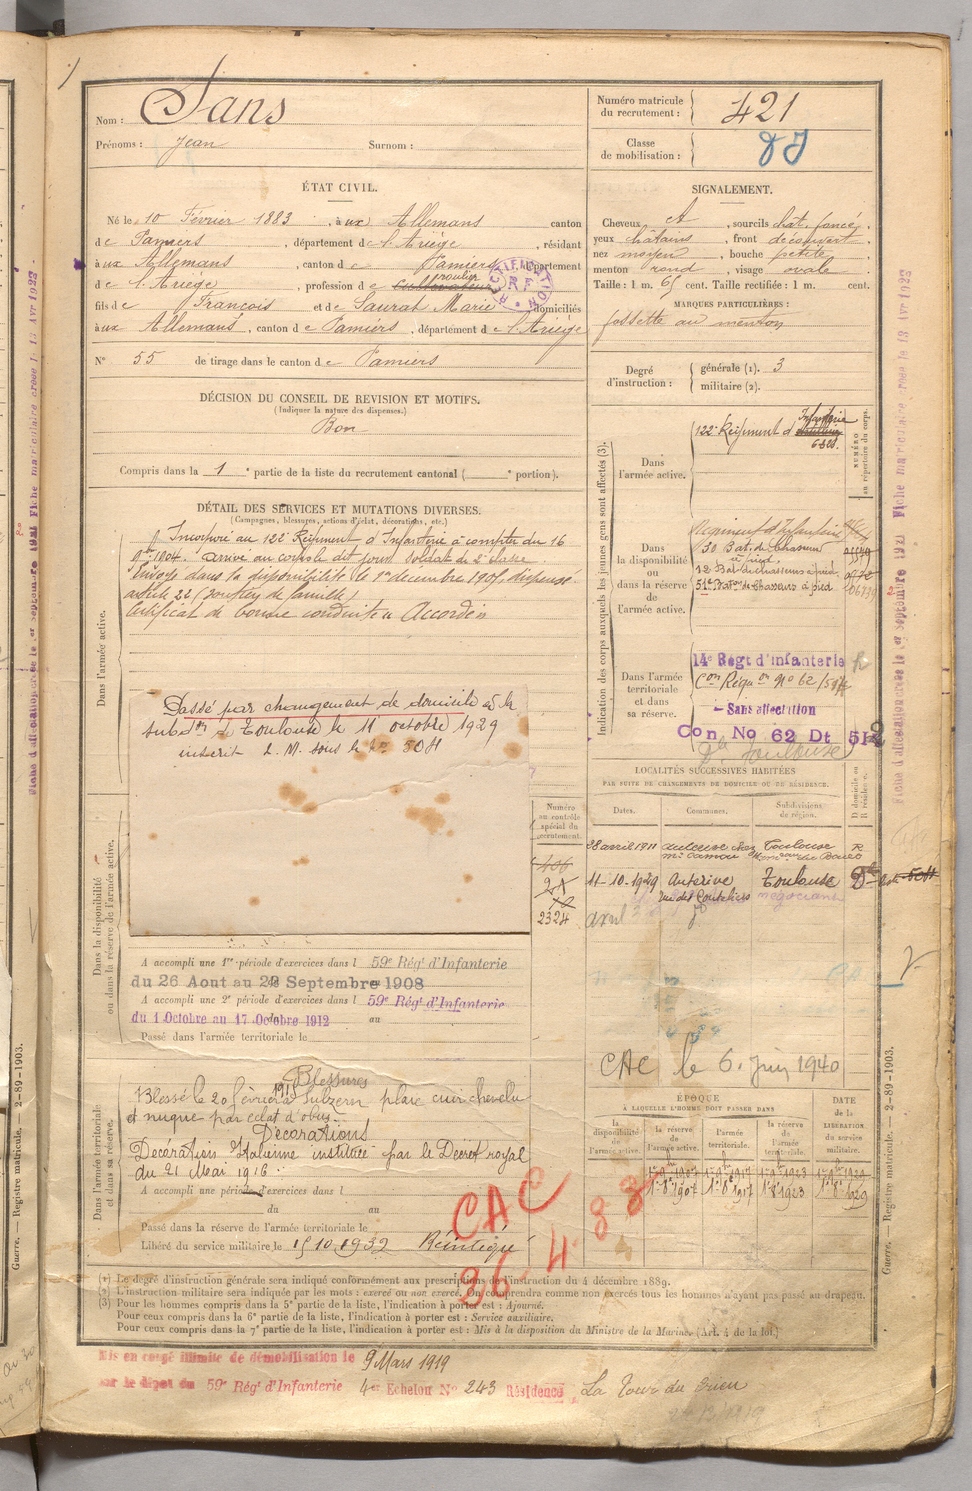 Nom : Sans
Prénoms : Jean Surnom :
Numéro matricule du recrutement : 421
Classe de mobilisation :
ÉTAT CIVIL.
Né le 10 Février 1883, à ux Allemans canton
de Pamiers, département de l'Ariège, résidant
à ux Allemans, canton de Pamiers, département
de l'Ariège, profession de cultivateur
fils de François et de Saurat Marie domiciliés
à ux Allemans, canton de Pamiers, département de l'Ariège
RECTIFICATION
R F
N° 55 de tirage dans le canton de Pamiers
SIGNALEMENT.
Cheveux ct, sourcils chât. foncé,
yeux châtains, front découvert
nez moyen, bouche petite,
menton rond, visage ovale
Taille : 1 m. 65 cent. Taille rectifiée : 1 m. cent.
MARQUES PARTICULIÈRES :
fossette au menton
Degré d'instruction : générale (1). 3
militaire (2).
DÉCISION DU CONSEIL DE REVISION ET MOTIFS.
(Indiquer la nature des dispenses.)
Bon
Compris dans la 1e partie de la liste du recrutement cantonal ( e portion).
DÉTAIL DES SERVICES ET MUTATIONS DIVERSES.
(Campagnes, blessures, actions d'éclat, décorations, etc.)
Dans l'armée active.
Incorporé au 122e Régiment d'Infanterie à compter du 16
9bre 1904. arrivé au corps le dit jour soldat de 2e classe.
Envoyé dans la disponibilité le 1er décembre 1905. dispensé
article 22 (soutien de famille)
Certificat de bonne conduite "Accordé"
Passé par changement de domicile à la
subdon de Toulouse le 11 octobre 1929
inscrit L. M. sous le No 5011
Dans la disponibilité ou dans la réserve de l'armée active.
A accompli une 1re période d'exercices dans l 59e Régt d'Infanterie
du 26 Aout au 22 Septembre 1908
A accompli une 2e période d'exercices dans l 59e Régt d'Infanterie
du 1 Octobre au 17 Octobre 1912
Passé dans l'armée territoriale le
Dans l'armée territoriale et dans sa réserve.
Blessures
Blessé le 20 février 1915 à Sulzern plaie cuir chevelu
et nuque par éclat d'obus
Décorations
Décoration Italienne instituée par le Décret royal
du 21 Mai 1916
A accompli une période d'exercices dans l
du au
Passé dans la réserve de l'armée territoriale le
Libéré du service militaire le 15 10 1932 Réintégré
CAC
26.4.88
Indication des corps auxquels les jeunes gens sont affectés (3).
NUMÉRO au répertoire du corps.
Dans l'armée active.
122e Régiment d'Infanterie
Dans la disponibilité ou dans la réserve de l'armée active.
Régiment d'Infanterie
30 Bat. de Chasseurs à pied
12 Bat. de chasseurs à pied
51e Baton de Chasseurs à pied
Dans l'armée territoriale et dans sa réserve.
14e Régt d'infanterie
Con Réqu on No 62
Sans affectation
Con No 62 Dt
Toulouse
LOCALITÉS SUCCESSIVES HABITÉES
PAR SUITE DE CHANGEMENTS DE DOMICILE OU DE RÉSIDENCE.
D domicile ou R résidence.
Numéro au contrôle spécial du recrutement.
406
2324
Dates. Communes. Subdivisions de région.
28 avril 1911 Auterive chez Toulouse R
11-10-1929 Auterive Toulouse D
négociant
avril
CAC le 6 Juin 1940
ÉPOQUE
À LAQUELLE L'HOMME DOIT PASSER DANS
la disponibilité de l'armée active. la réserve de l'armée active. l'armée territoriale. la réserve de l'armée territoriale.
DATE de la LIBÉRATION du service militaire.
1er 9bre 1907 1er 9bre 1917 1er 9bre 1923 1er 9bre 1929
1er 8bre 1907 1er 8bre 1917 1er 8 1923 1er 8bre 1929
(1) Le degré d'instruction générale sera indiqué conformément aux prescriptions de l'instruction du 4 décembre 1889.
(2) L'instruction militaire sera indiquée par les mots : exercé ou non exercé. On comprendra comme non exercés tous les hommes n'ayant pas passé au drapeau.
(3) Pour les hommes compris dans la 5e partie de la liste, l'indication à porter est : Ajourné.
Pour ceux compris dans la 6e partie de la liste, l'indication à porter est : Service auxiliaire.
Pour ceux compris dans la 7e partie de la liste, l'indication à porter est : Mis à la disposition du Ministre de la Marine. (Art. 4 de la loi.)
Mis en congé illimité de démobilisation le 9 Mars 1919
par le dépôt du 59e Régt d'Infanterie 4e Echelon No 243 Résidence La Tour du Crieu
Guerre. — Registre matricule. — 2-89-1903.
Guerre. — Registre matricule. — 2-89-1903.
Fiche d'affectation créée le 1er Septembre 1921 Fiche matriculaire créée le 13 Avr 1922
Fiche d'affectation créée le 1er Septembre 1921 Fiche matriculaire créée le 13 Avr 1922